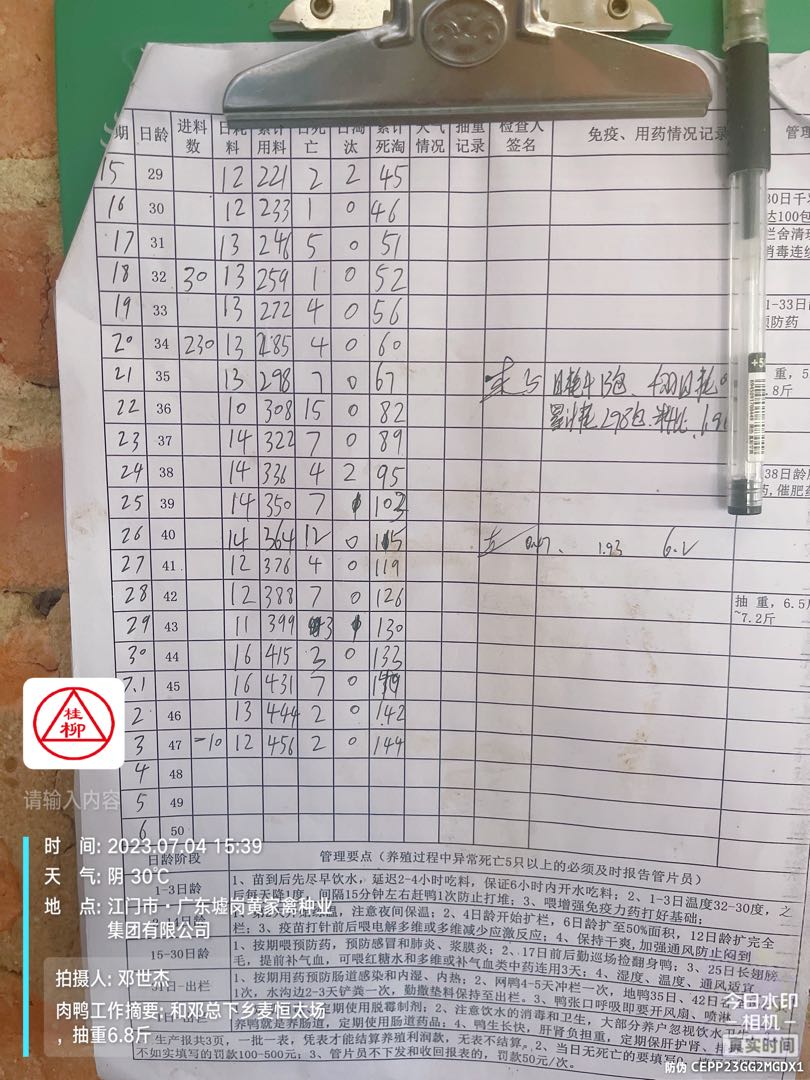 期 日龄 进料数 日耗料 累计用料 日死亡 日淘汰 累计死淘 天气情况 抽重记录 检查人签名 免疫、用药情况记录 管理
15 29 12 221 2 2 45
16 30 12 233 1 0 46
17 31 13 246 5 0 51
18 32 30 13 259 1 0 52
19 33 13 272 4 0 56
20 34 230 13 285 4 0 60
21 35 13 298 7 0 67
22 36 10 308 15 0 82
23 37 14 322 7 0 89
24 38 14 336 4 2 95
25 39 14 350 7 103
26 40 14 364 12 0 115
27 41 12 376 4 0 119
28 42 12 388 7 0 126
29 43 11 399 3 130
30 44 16 415 2 0 133
7.1 45 16 431 7 0
2 46 13 444 2 0 142
3 47 -10 12 456 2 0 144
4 48
5 49
6 50
30日千
达100包
栏舍清
消毒连续
1-33日
预防药
重,5
.8斤
38日龄
药,催肥
抽 重,6.5
~7.2斤
日龄阶段 管理要点(养殖过程中异常死亡5只以上的必须及时报告管片员)
1-3日龄 1、苗到后先尽早饮水,延迟2-4小时吃料,保证6小时内开水吃料;2、1-3日温度32-30度,之
后每天降1度,间隔15分钟左右赶鸭1次防止打堆;3、喂增强免疫力药打好基础;
注意夜间保温;2、4日龄开始扩栏,6日龄扩至50%面积,12日龄扩完全
栏;3、疫苗打针前后喂电解多维或多维减少应激反应;4、保持干爽,加强通风防止闷到
15-30日龄 1、按期喂预防药,预防感冒和肺炎、浆膜炎;2、17日前后勤巡场捡翻身鸭;3、25日长翅膀
毛,提前补气血,可喂红糖水和多维或补气血类中药连用3天;4、湿度、温度、通风适宜
日-出栏 1、按期用药预防肠道感染和内湿、内热;2、网鸭4-5天冲栏一次,地鸭35日、42日
1次,水沟边2-3天铲粪一次,勤撒垫料保持至出栏。3、鸭张口呼吸即要开风扇、喷淋
定期使用脱霉制剂;2、注意饮水的消毒和卫生,大部分养户忽视饮水卫生
养鸭就是养肠道,定期使用肠道药品;4、鸭生长快,肝肾负担重,定期保肝护肾、
生产报共3页,一批一表,凭表才能结算养殖利润款,无表不结算。2、当日无死亡的要填写0,
不如实填写的罚款100-500元;3、管片员不下发和收回报表的,罚款50元/次。
桂柳
请输入内容
时 间: 2023.07.04 15:39
天 气: 阴 30℃
地 点: 江门市·广东墟岗黄家禽种业
集团有限公司
拍摄人: 邓世杰
肉鸭工作摘要: 和邓总下乡麦恒太场
,抽重6.8斤
今日水印
相机
真实时间
防伪 CEPP23GG2MGDX1